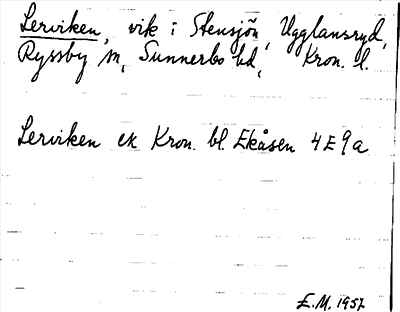 Lerviken, vik i Stensjön, Ugglansryd,
Ryssby sn, Sunnerbo hd, Kron. l.
Lerviken ek Kron. bl. Ekåsen 4E9a
E.M. 1957